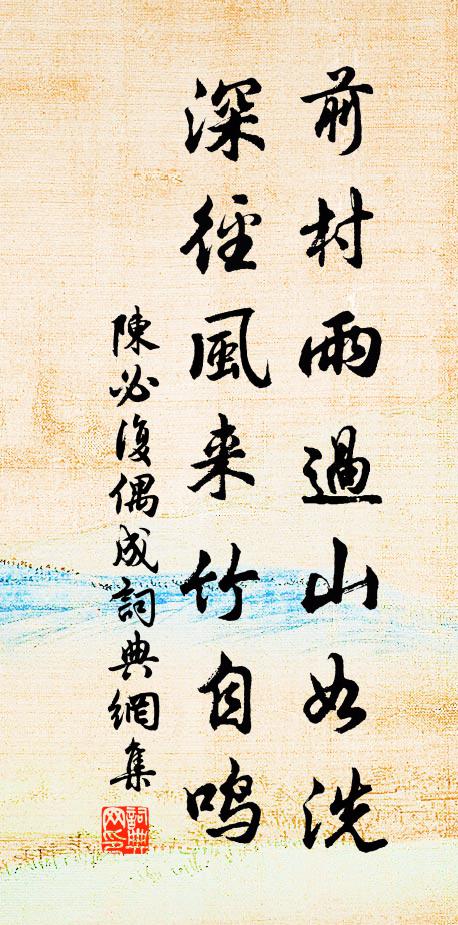 前村雨過山如洗
深徑風来竹自鳴
陳必復偶成詞典網集
詞典網印